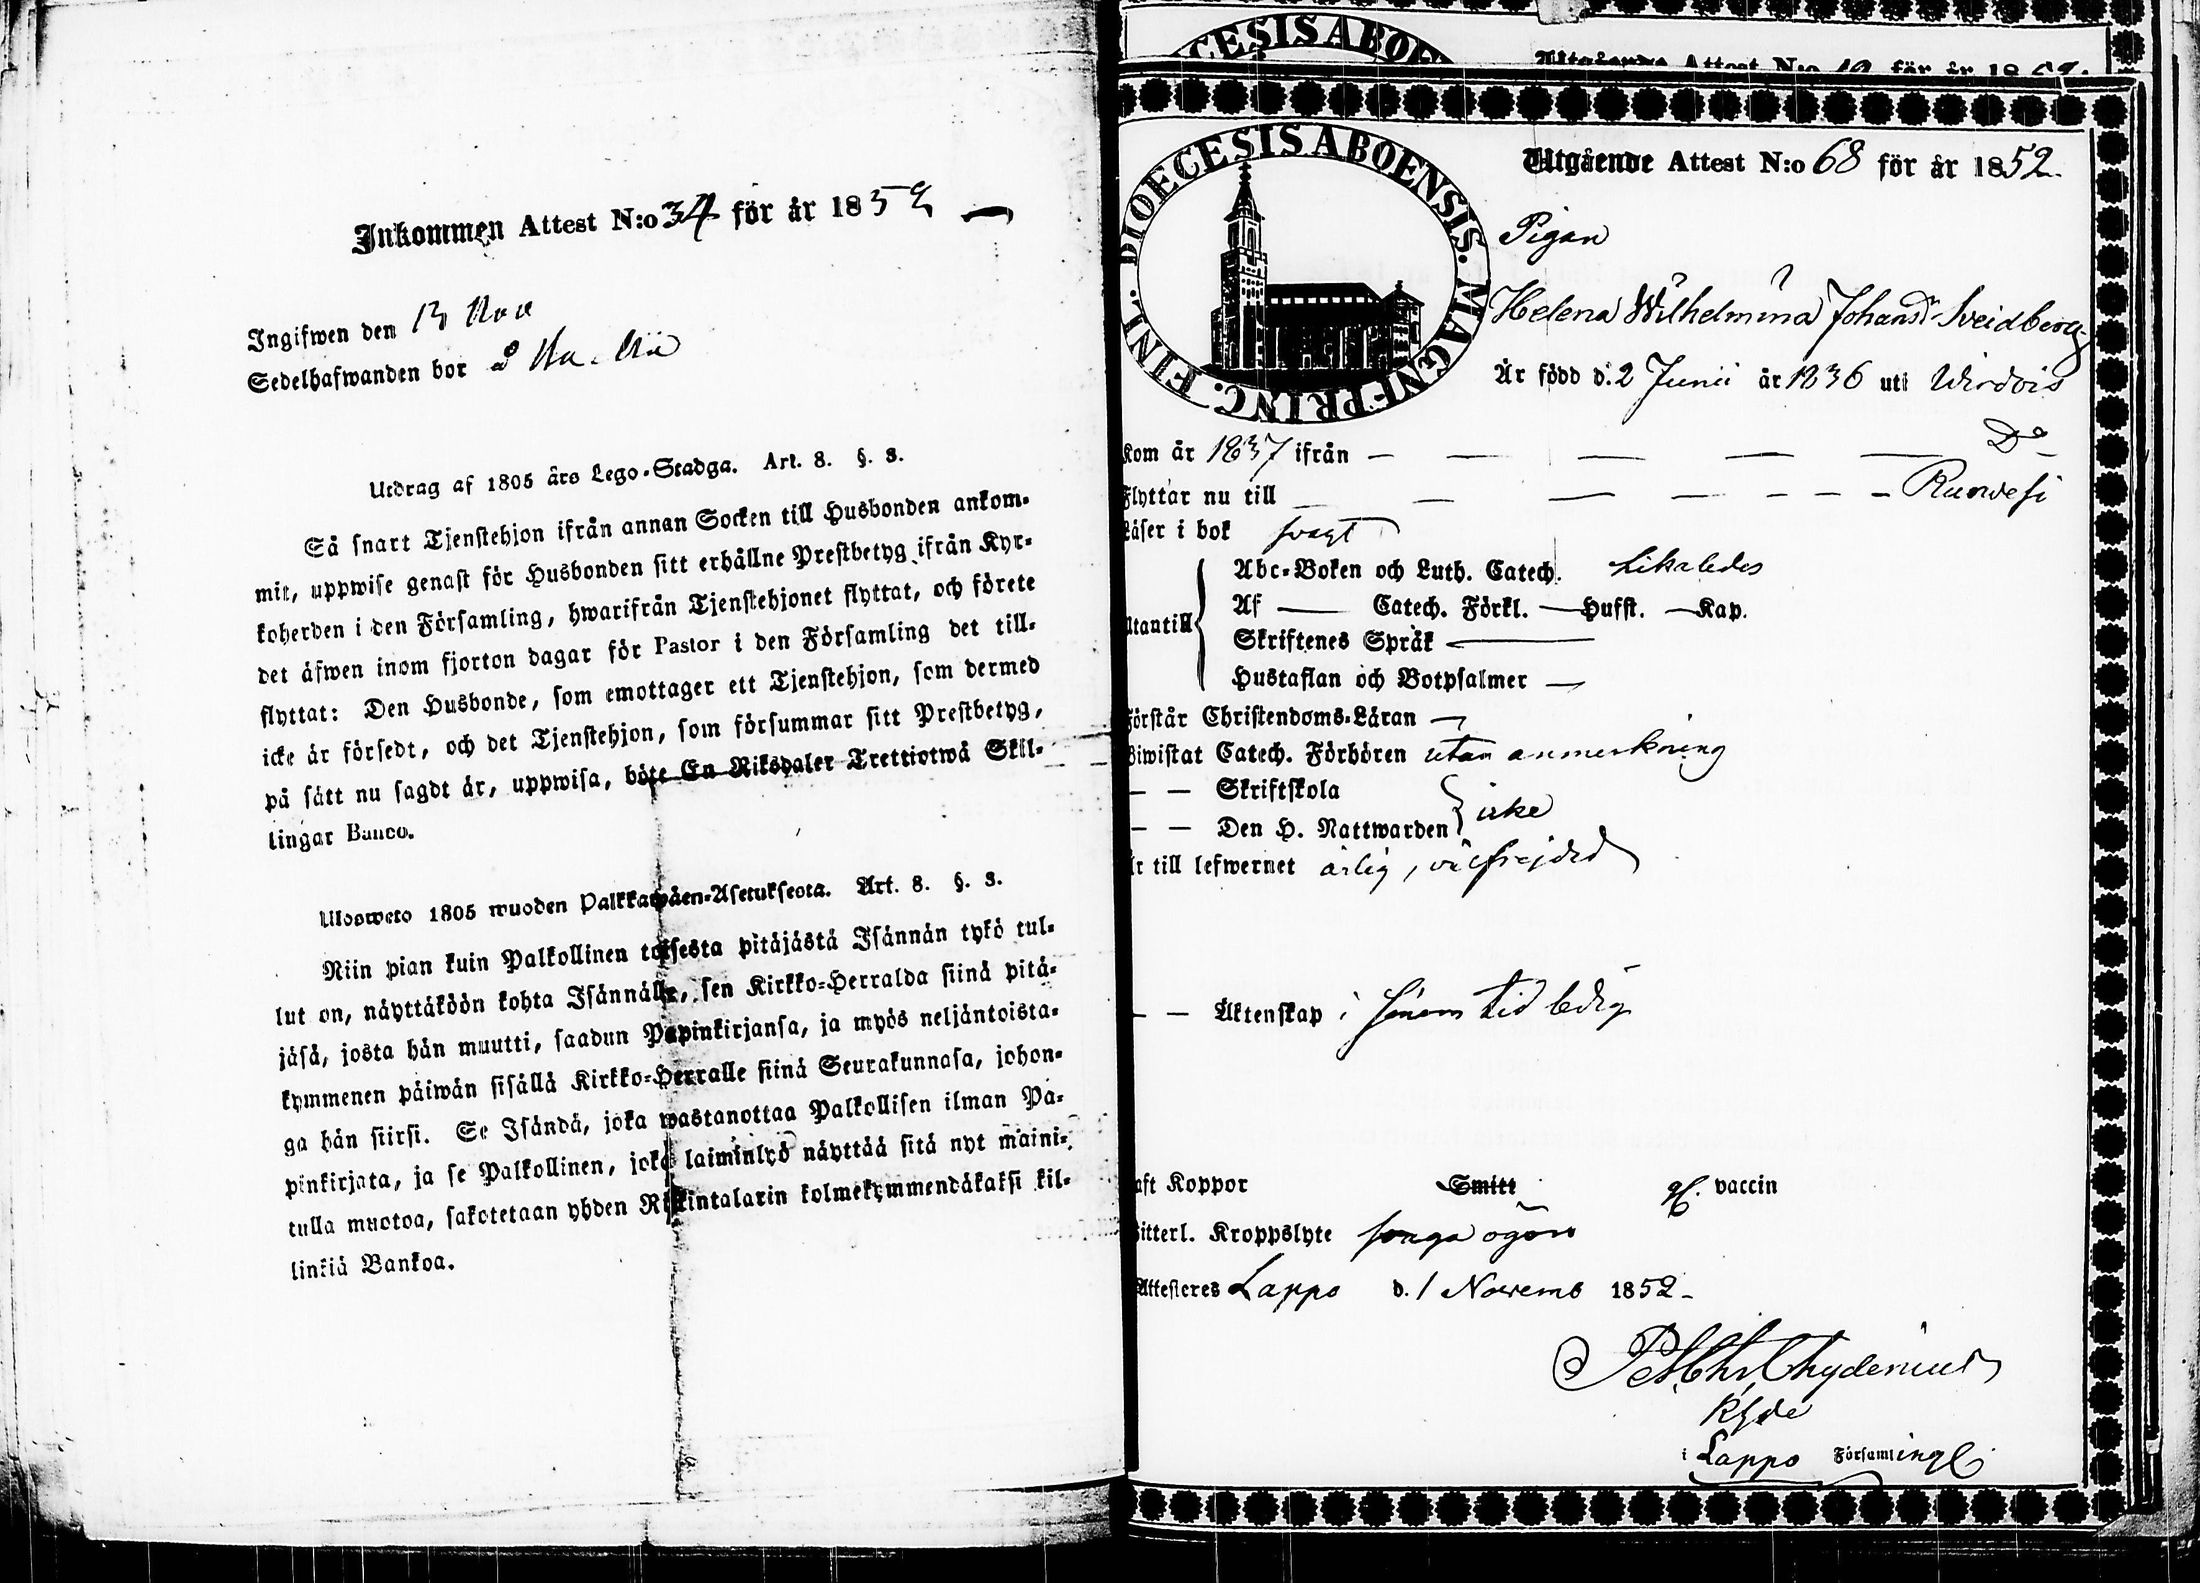 Inkommen Attest N:o 34 för år 1852
Ingifwen den 13 Nov
Sedelhafwanden bor
Utdrag af 1805 års Lego-Stadga. Art. 8. §. 3.
Så snart Tjenstehjon ifrån annan Socken till Husbonden ankom-
mit, uppwise genast för Husbonden sitt erhållne Prestbetyg ifrån Kyr-
koherden i den Församling, hwarifrån Tjenstehjonet flyttat, och förete
det äfwen inom fjorton dagar för Pastor i den Församling det till-
flyttat: Den Husbonde, som emottager ett Tjenstehjon, som dermed
icke är försedt, och det Tjenstehjon, som försummar sitt Prestbetyg,
på sätt nu sagdt är, uppwisa, böte En Riksdaler Trettiotwå Skil-
lingar Banco.
Ulosweto 1805 wuoden Palkkawäen-Asetuksesta. Art. 8. §. 3.
Niin pian kuin Palkollinen toisesta pitäjästä Isännän tykö tul-
lut on, näyttäköön kohta Isännälle, sen Kirkko-Herralda siinä pitä-
jäsä, josta hän muutti, saadun Papinkirjansa, ja myös neljäntoista-
kymmenen päiwän sisällä Kirkko-Herralle siinä Seurakunnasa, johon-
ga hän siirsi. Se Isändä, joka wastanottaa Palkollisen ilman Pa-
pinkirjata, ja se Palkollinen, joka laiminlyö näyttää sitä nyt maini-
tulla muotoa, sakotetaan yhden Riikintalarin kolmekymmendäkaksi kil-
linkiä Bankoa.
CESIS ABOE
Utgående Attest N:o för år 1852.
DIOECESIS ABOENSIS. MAGN. PRINC. FINL.
Utgående Attest N:o 68 för år 1852.
Pigan
Helena Wilhelmina Johansdr Sveidberg
Är född d. 2 Junii år 1836 uti Wirdois
Kom år 1837 ifrån — — — — — Do
Flyttar nu till — — — — — — — Ruowesi
Läser i bok svagt
Abc-Boken och Luth. Catech. Likaledes
Utantill Af — Catech. Förkl. — Husst. — Kap.
Skriftenes Språk —
Hustaflan och Botpsalmer —
Förstår Christendoms-Läran —
Biwistat Catech. Förhören utan anmerkning
— — Skriftskola
— — Den H. Nattwarden } icke
Är till lefwernet ärlig, välfrejdad
— — Äktenskap i sinom tid ledig
Haft Koppor Smitt gl. vaccin
Witterl. Kroppslyte svaga ögon
Attesteres Lappo d. 1 Novemb 1852 -
Pet. Chr. Chydenius
Khde
i Lappo Församlingl